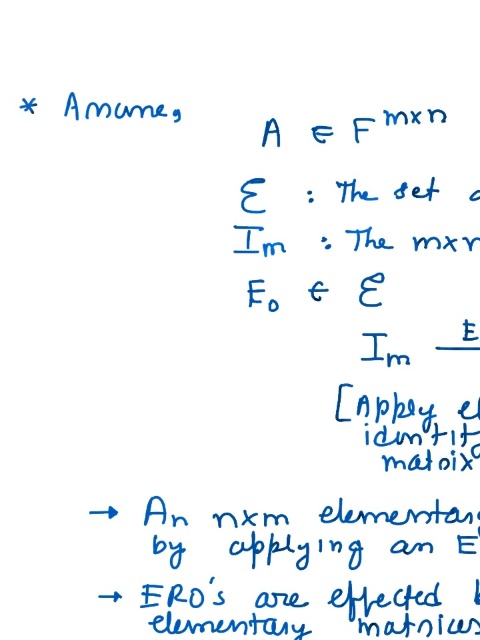 * Assume,
A ∈ F^{m×n}
ℰ : The set
I_m : The m×n
E_0 ∈ ℰ
I_m E
[Apply
identit
matrix
→ An n×m elementary
by applying an E
→ ERO's are effected b
elementary matrices